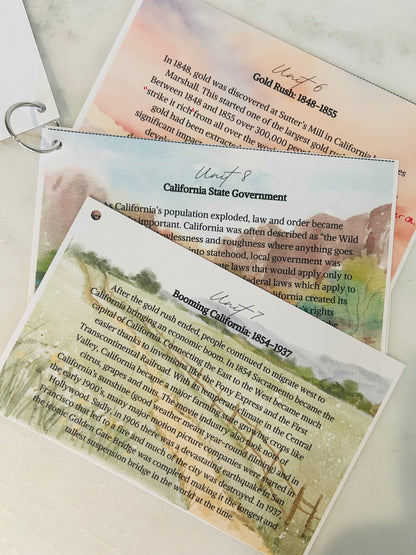 Unit 6
Gold Rush: 1848-1855
In 1848, gold was discovered at Sutter's Mill in California
Marshall. This started one of the largest gold
Between 1848 and 1855 over 300,000
"strike it rich" from all over the
gold had been extracted
significant impac
Unit 8
California State Government
As California's population exploded, law and order became
important. California was often described as "the Wild
lawlessness and roughness where anything goes.
into statehood, local government was
laws that would apply only to
deral laws which apply to
California created its
rights
Unit 7
Booming California: 1854-1937
After the gold rush ended, people continued to migrate west to
California bringing an economic boom. In 1854 Sacramento became the
capital of California. Connecting the East to the West became much
easier thanks to inventions like the Pony Express and the First
Transcontinental Railroad. With its temperate climate in the Central
Valley, California became a major farming state growing crops like
citrus, grapes and nuts. The movie industry also took note of
California's sunshine (good weather mean year-round filming) and in
the early 1900's, many major motion picture companies were started in
Hollywood. Sadly, in 1906 there was a devastating earthquake in San
Francisco that led to a fire and much of the city was destroyed. In 1937
the iconic Golden Gate Bridge was completed making it the longest and
tallest suspension bridge in the world at the time.